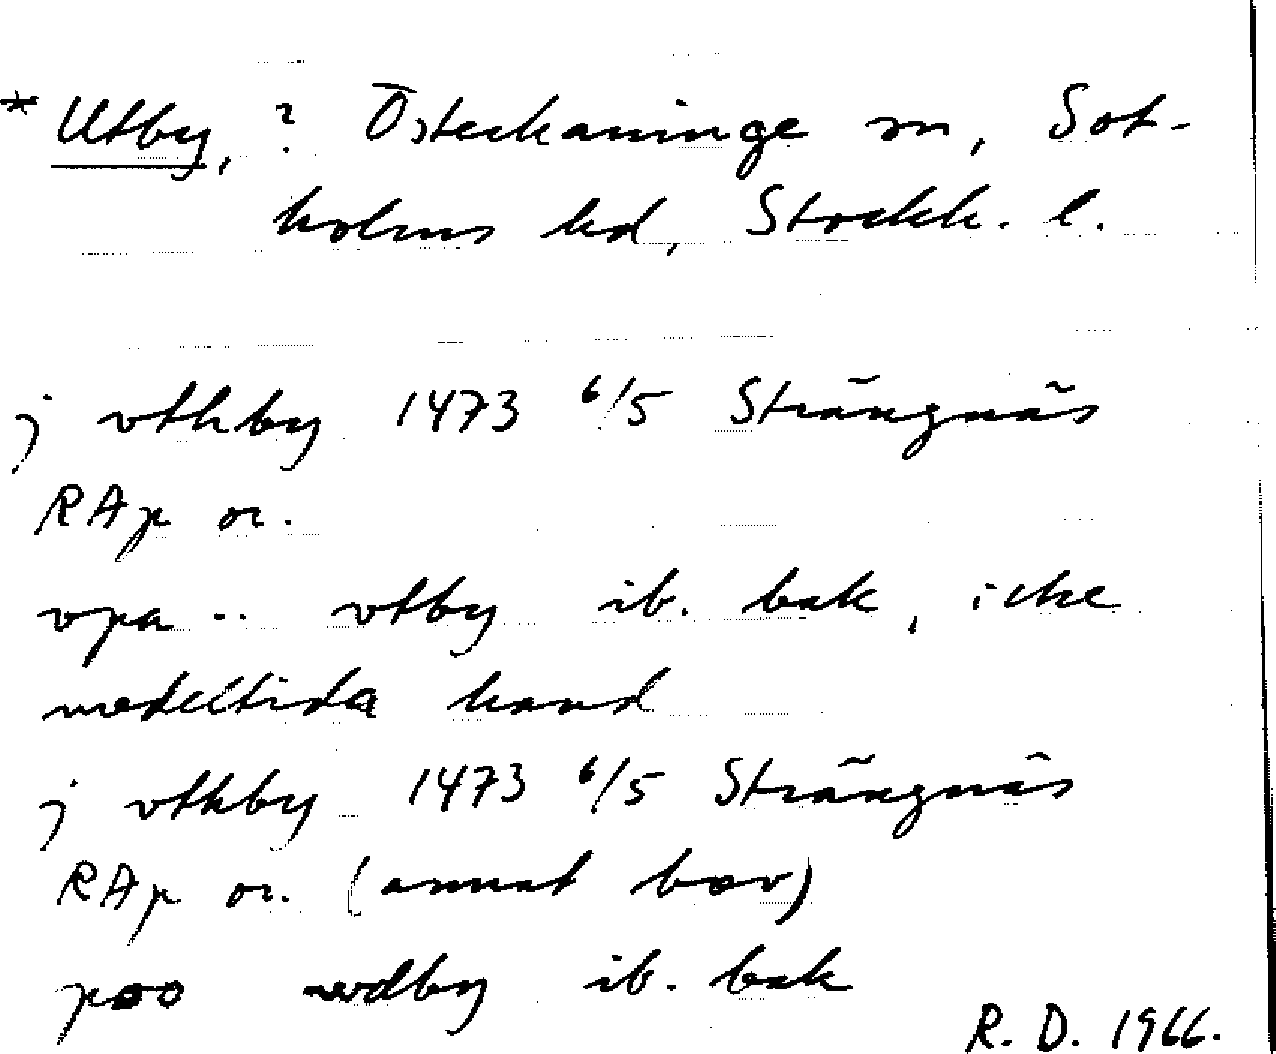 * Utby, ? Österhaninge sn, Sot-
holms hd, Stockh. l.
j vthby 1473 6/5 Strängnäs
RAp or.
vpa .. vtby ib. bak, icke
medeltida hand
j vthby 1473 6/5 Strängnäs
RAp or. (annat brev)
poo wdby ib. bak
R. D. 1966.